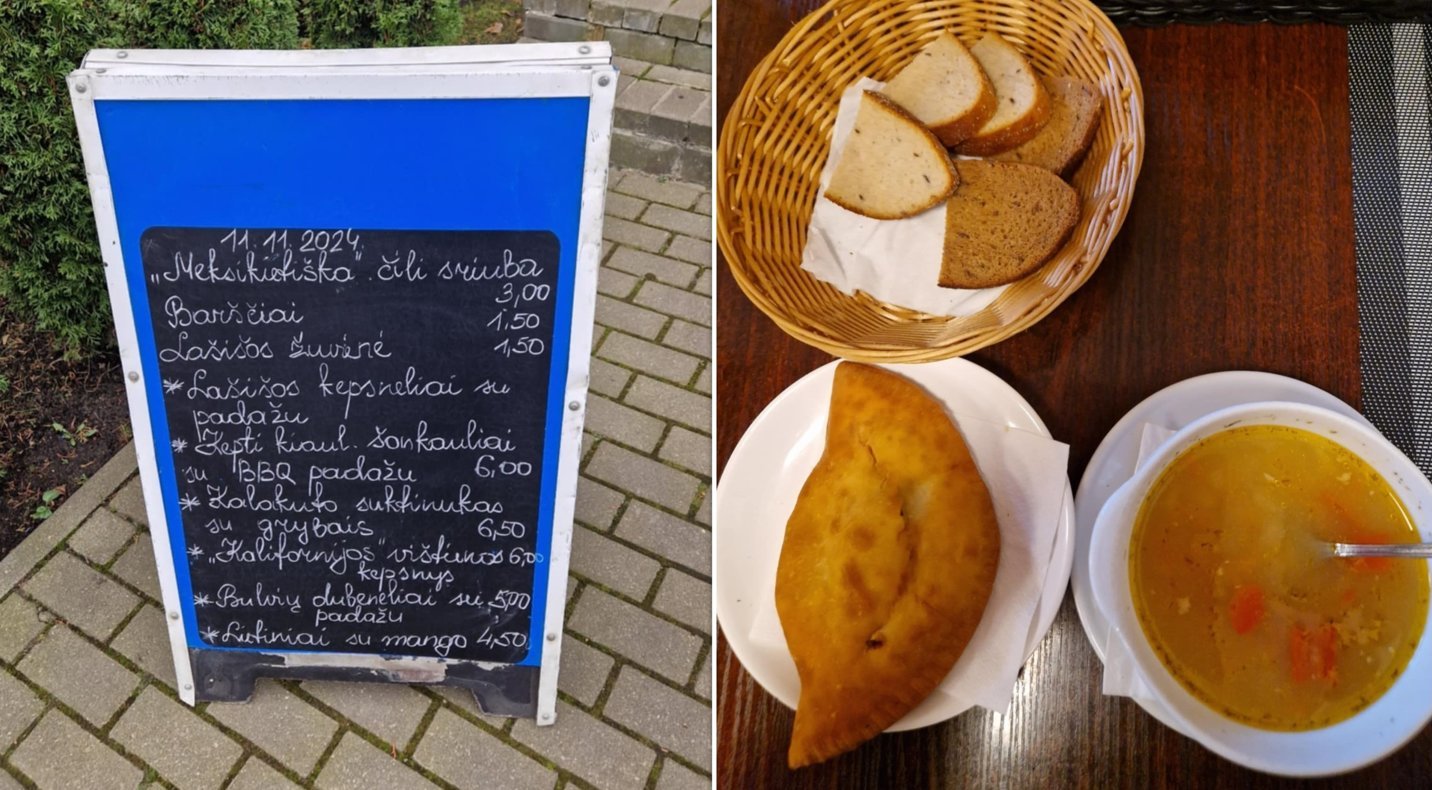 11.11.2024.
„Meksikietiška" čili sriuba
3,00
Barščiai 1,50
Lašišos žuvienė 1,50
* Lašišos kepsneliai su
padažu
* Kepti kiaul. šonkauliai
su BBQ padažu 6,00
* Kalakuto suktinukas
su grybais 6,50
* „Kalifornijos" vištienos 6,00
kepsnys
* Bulvių dubenėliai su 5,00
padažu
* Lietiniai su mango 4,50